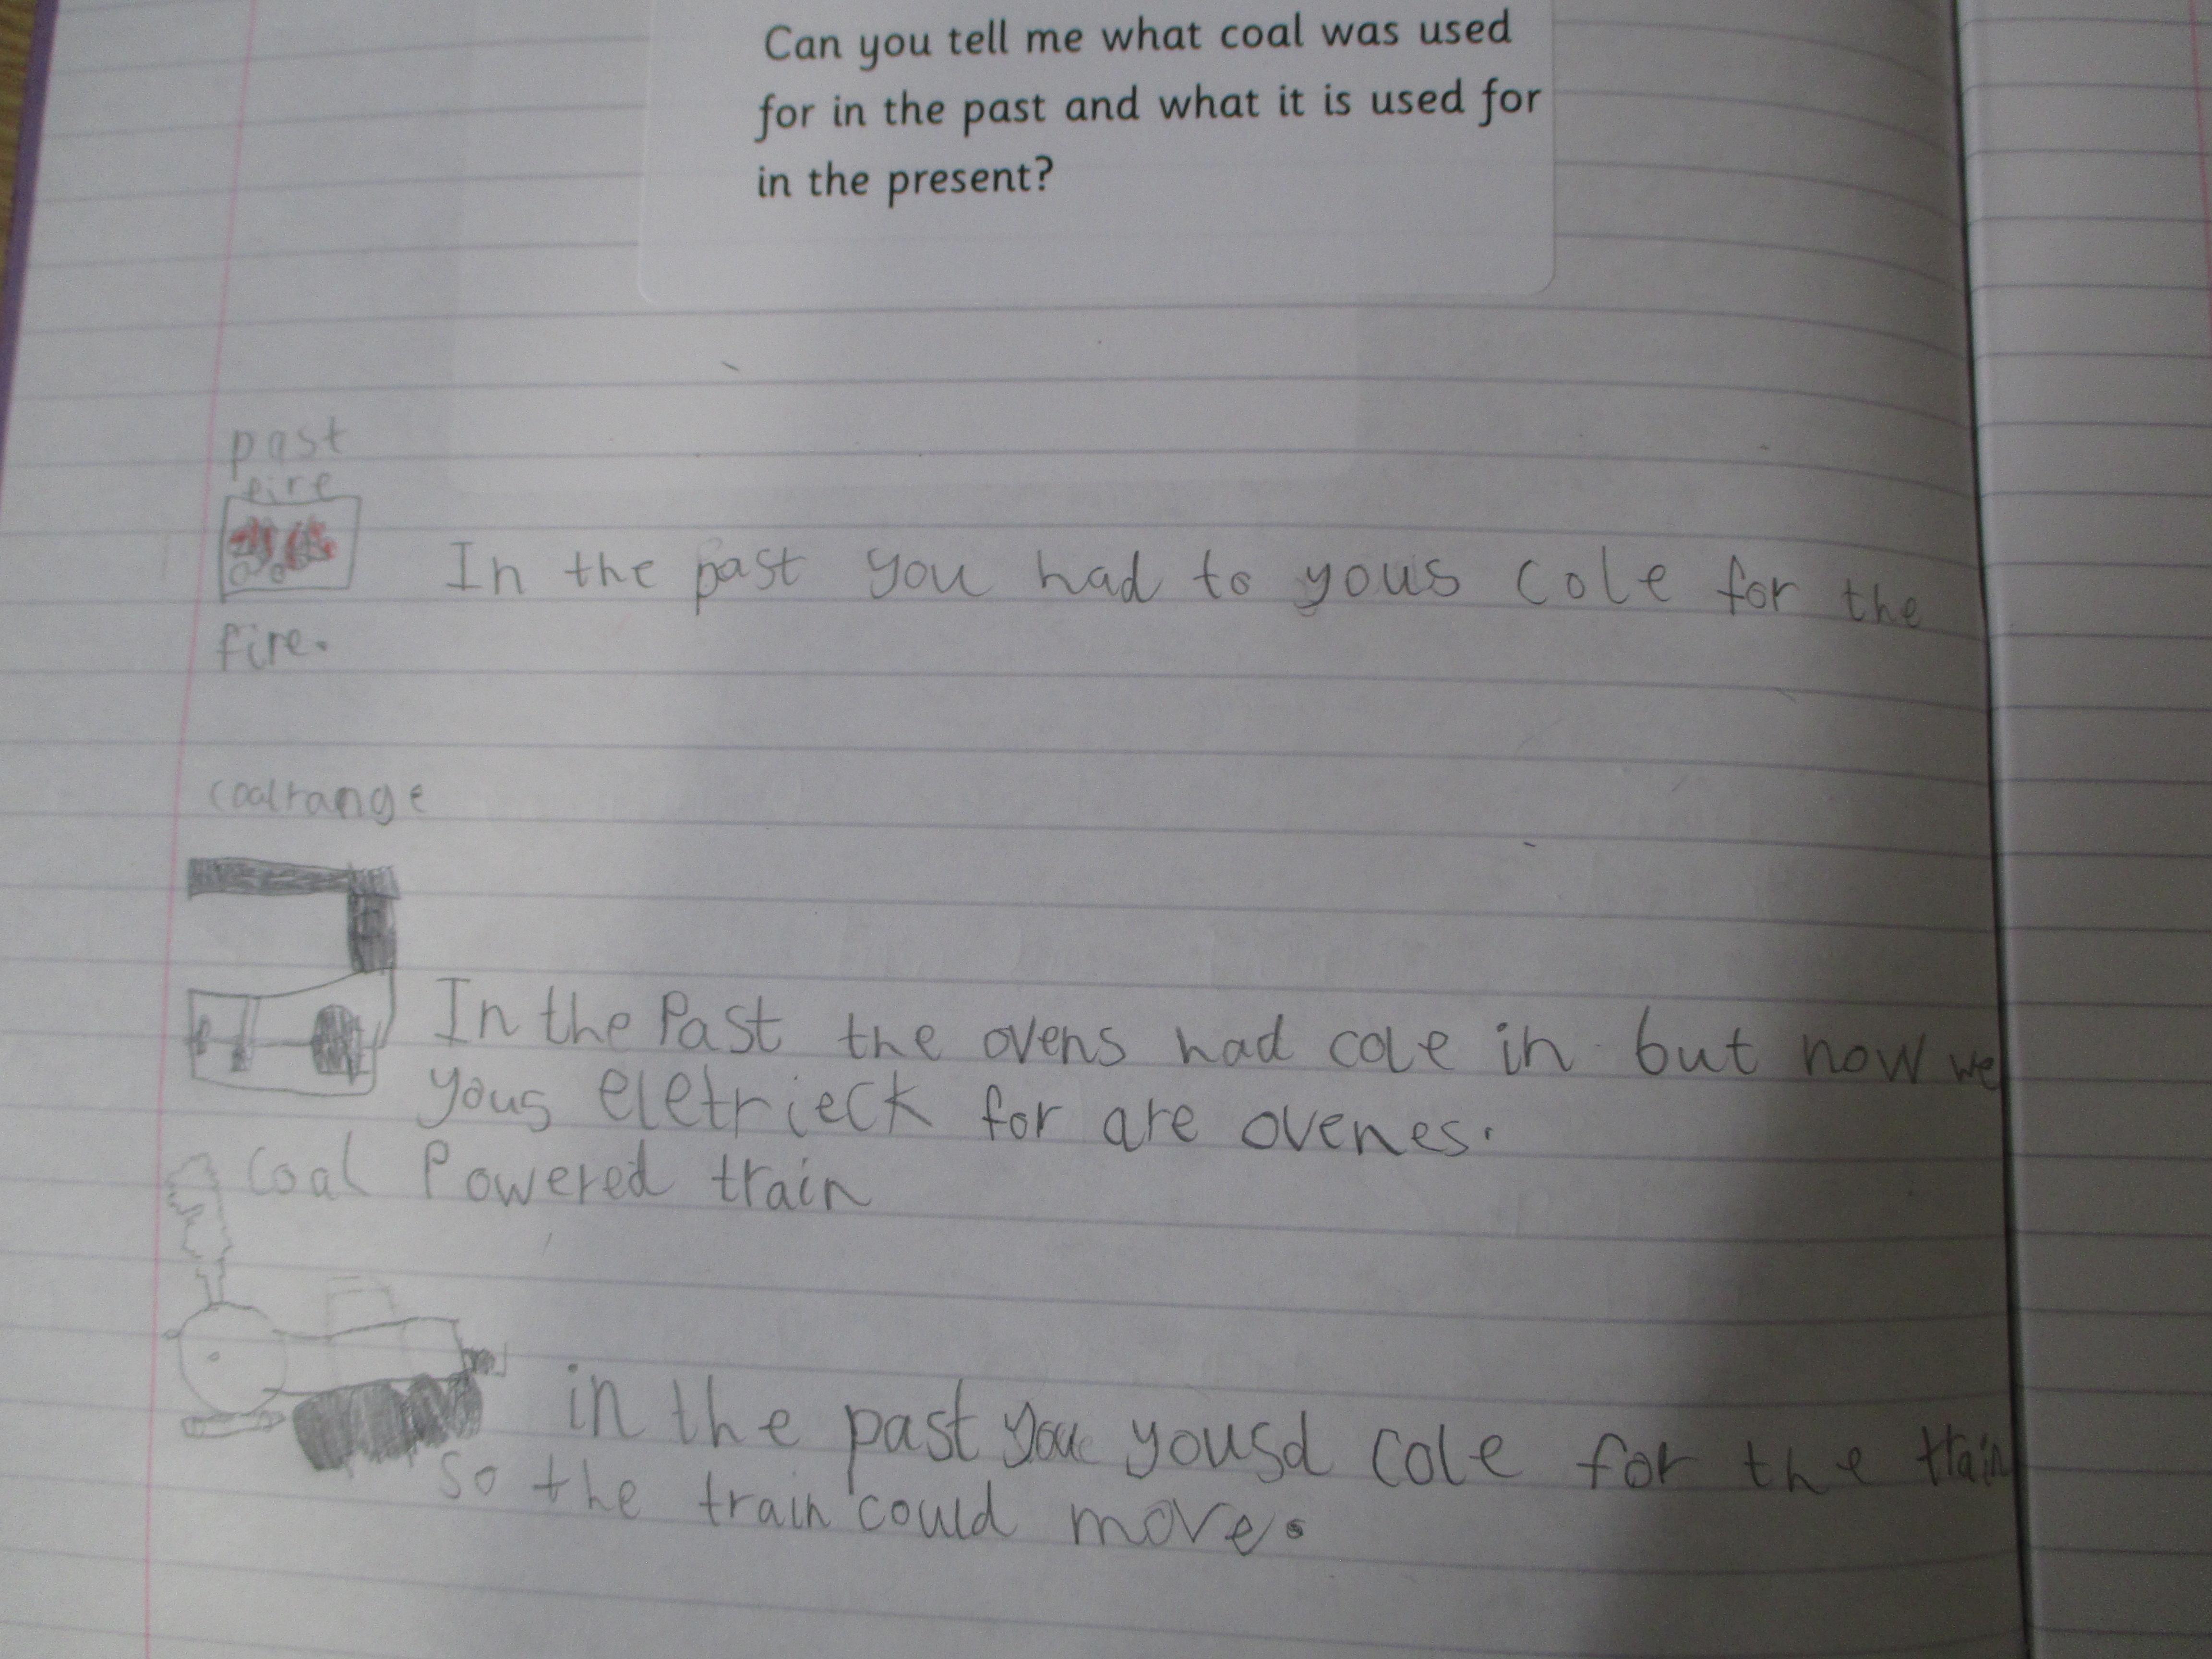 Can you tell me what coal was used
for in the past and what it is used for
in the present?
past
fire
In the past you had to yous cole for the
fire.
coalrange
In the Past the ovens had cole in but now we
yous eletrieck for are ovenes.
Coal Powered train
in the past you yousd cole for the train
so the train could move.